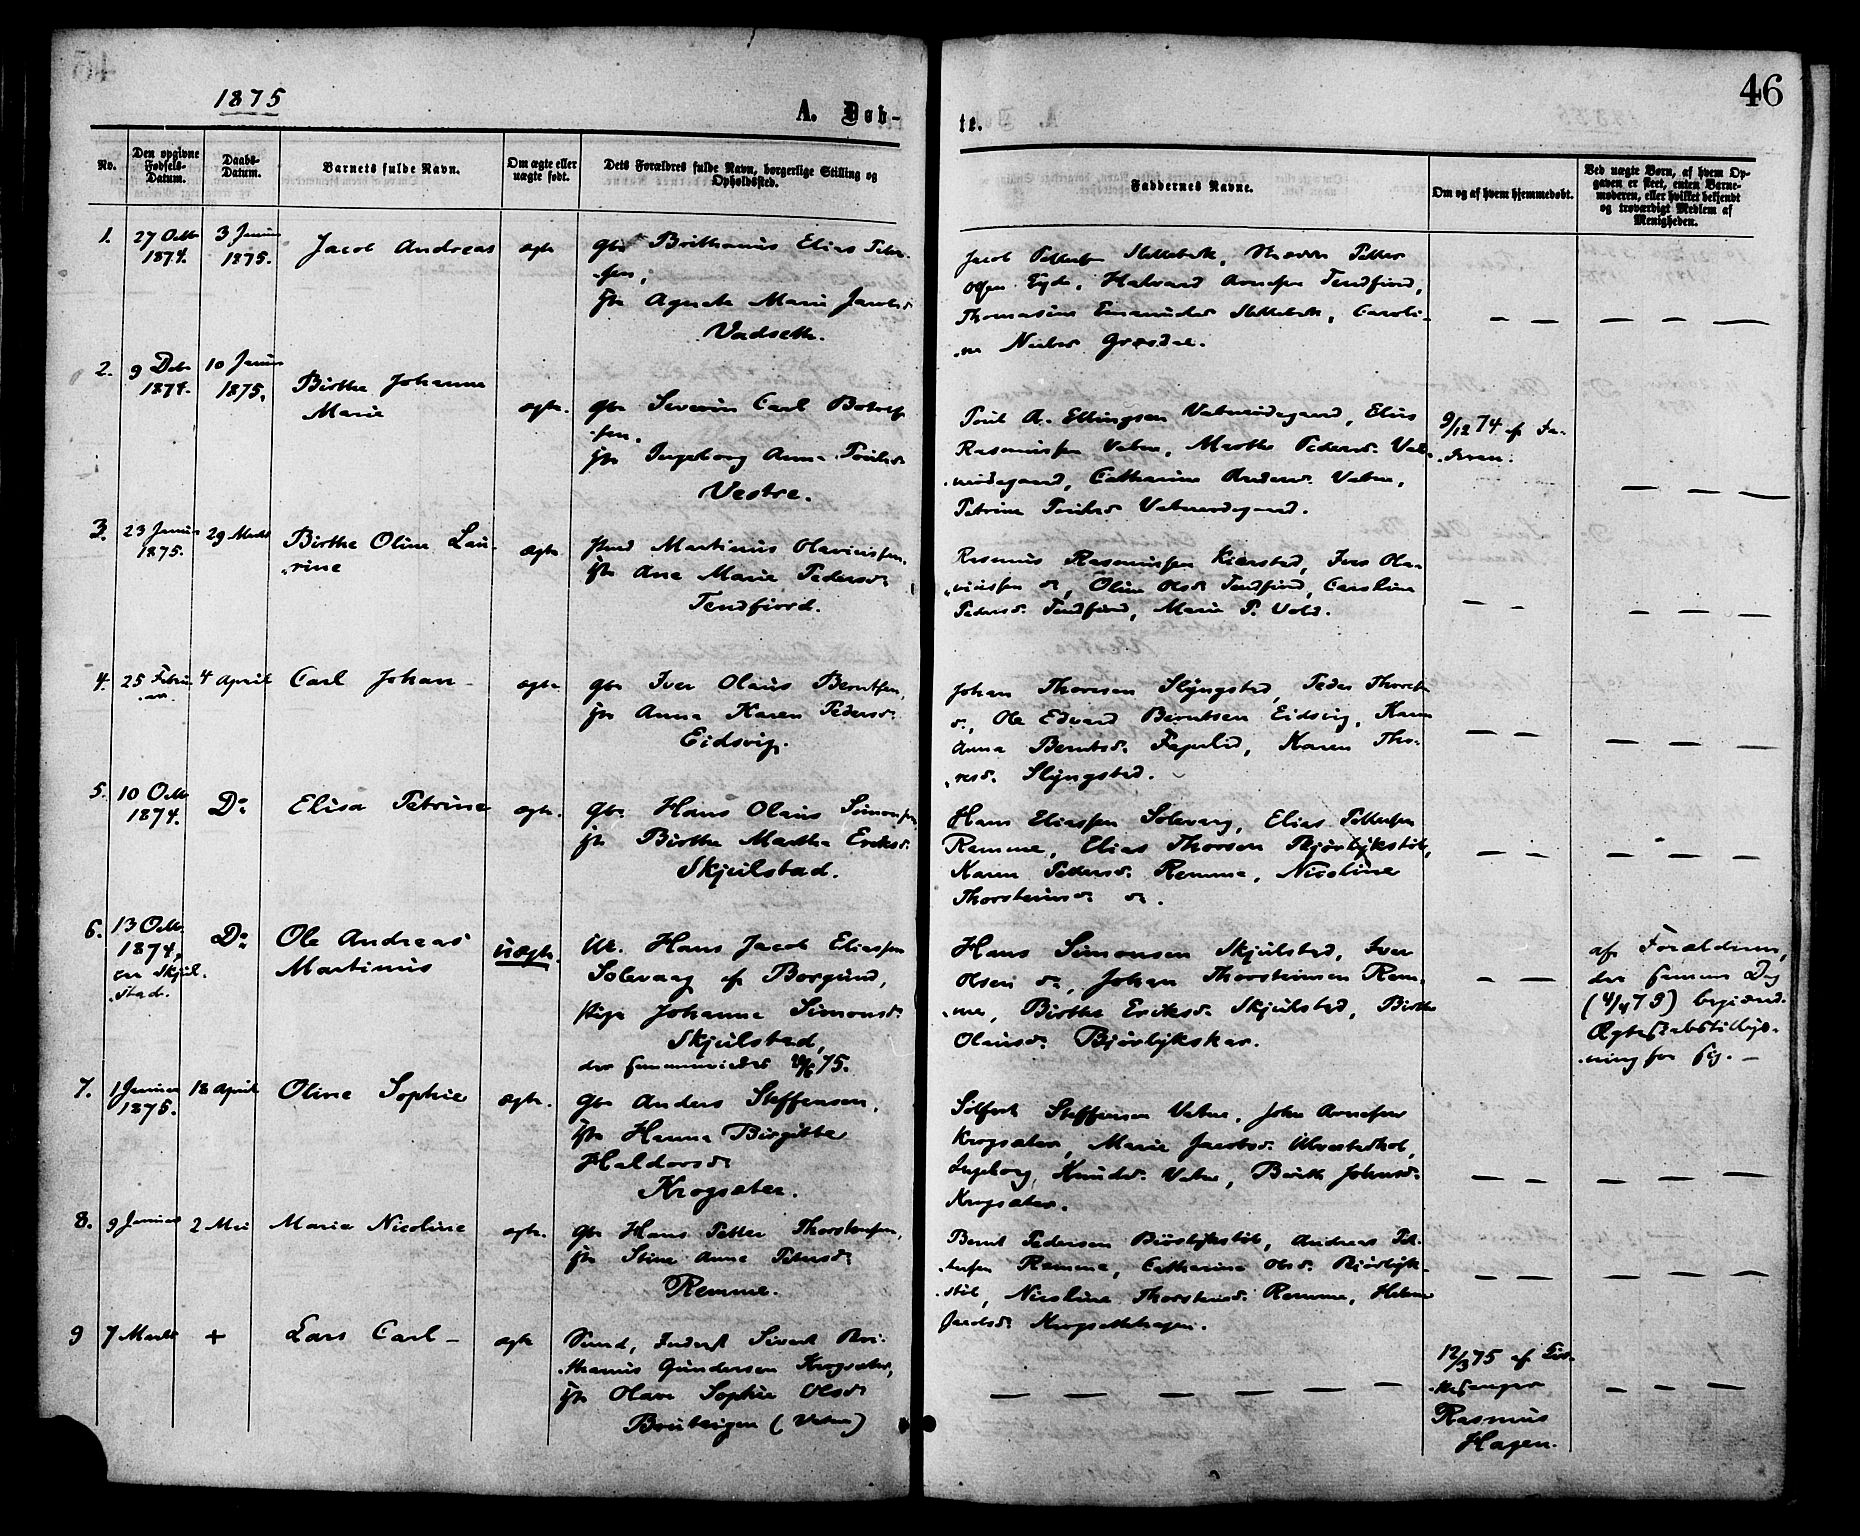 46
1875
A. Døb-
te.
No.
Den opgivne Fødsels-Datum.
Daabs-Datum.
Barnets fulde Navn.
Om ægte eller uægte født.
Dets Forældres fulde Navn, borgerlige Stilling og Opholdssted.
Faddernes Navne.
Om og af hvem hjemmedøbt.
Ved uægte Børn, af hvem Opgaven er skeet, enten Barnemoderen, eller hvilket bekjendt og troværdigt Medlem af Menigheden.
1.
27 Octb
1874.
3 Januar
1875.
Jacob Andreas
ægte
Gbr Brithanius Elias Peter-
sen,
Agnete Marie Jacobsd
Vadseth.
Jacob Pettersen Slettebak, Petter
Olsen Eyde, Halvard Arnesen Tendfiord,
Thomasine Emanuelsd Slettebak, Caroli-
ne Grøsdal.
2.
9 Debr
1874.
10 Januar
1875.
Birthe Johanne
Marie
ægte.
Gbr Severin Carl Botolf-
sen,
Ingeborg Anna Poulsd
Vestre.
Poul A. Ellingsen Vatneødegaard, Elias
Rasmussen Vatne, Marthe Pedersd. Vat-
neødegaard, Catharine Andersd. Vatne,
Petrine Poulsd Vatneødegaard.
9/12 74 af Fa-
deren.
3.
23 Januar
1875.
29 Marts
Birthe Oline Lau-
rine
ægte
Martinus Olaviussen,
Ane Marie Pedersd
Tendfiord.
Rasmus Rasmussen Kiærstad, Iver Ola-
viussen do, Oline Olsd Tendfiord, Caroline
Pedersd. Tendfiord, Marie P. Vold.
4.
25 Febru
ar
4 April
Carl Johan
ægte
Gbr Iver Olaus Berntsen,
Anna Karen Pedersd.
Eidsvig.
Johan Thoresen Slyngstad, Peder Thoresen
do, Ole Edvard Berntsen Eidsvig, Karen
Anna Berntsd. Karen Tho-
resd. Slyngstad.
5.
10 Octb
1874.
Do
Elisa Petrine
ægte.
Gbr. Hans Olaus Simonsen,
Birthe Marthe Eriksd.
Skjulstad.
Hans Eliassen Solevaag, Elias Pettersen
Remme, Elias Thorsen Bjørlykstøl,
Karen Pedersd. Remme, Nicoline
Thorsteinsd do.
6.
13 Octb
1874,
Skjul-
stad.
Do
Ole Andreas
Martinus
uægte.
Uk. Hans Jacob Eliassen
Solevaag af Borgund,
Pige Johanne Simonsd.
Skjulstad,
75.
Hans Simonsen Skjulstad, Iver
Olsen do, Johan Thorsteinsen Rem-
me, Birthe Eriksd. Skjulstad, Birthe
Olausd. Bjørlykskar.
af Forældrene,
der samme Dag
(4/4 75) begjærd.
Ægteskabstillys-
ning for sig.
7.
1 Januar
1875.
18 April
Oline Sophie
ægte.
Gbr Anders Steffensen,
Hanna Birgitte
Haldorsd
Krogsæter.
Steffensen Vatne, John Arnesen
Krogsæter, Marie Jacobsd. Ulvestadhol,
Ingeborg Knudsd. Vatne, Birthe Johnsd.
Krogsæter.
8.
9 Januar
2 Mai
Marie Nicoline
ægte.
Gbr Hans Petter Thorsteinsen,
Stine Anna Petersd.
Remme.
Bernt Pedersen Bjørlykstøl, Andreas Pet-
tersen Remme, Catharine Olsd. Bjørlyk-
støl, Nicoline Thorsteinsd. Remme,
Jacobsd.
9
7 Marts
+
Lars Carl
ægte
Inderst Sivert Bri-
thanius Gundersen Krogsæter,
Olave Sophie Olsd
(Vatne)
12/3 75 af Kir-
kesanger
Rasmus
Hagen.